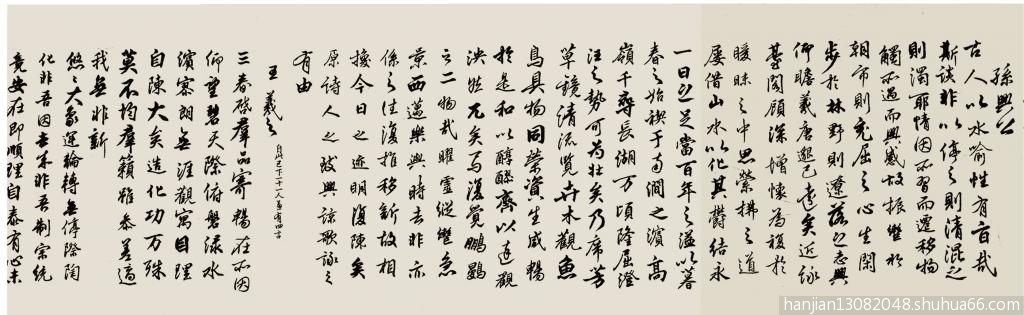 孫興公
古人以水喻性有旨哉
斯談非以停之則清混之
則濁耶情因所習而遷移物
觸所遇而興感故振轡於
朝市則充屈之心生閑
步於林野則遼落之志興
仰瞻羲唐邈已遠矣近詠
臺閣顧深增懷為復於
曖昧之中思縈拂之道
屢借山水以化其鬱結永
一日之足當百年之溢以暮
春之始禊于南澗之濱高
嶺千尋長湖万頃隆屈澄
汪之勢可為壯矣乃席芳
草鏡清流覽卉木觀魚
鳥具物同榮資生咸暢
於是和以醇醪齊以達觀
泱然兀矣焉復覺鵬鷃
之二物哉曜靈縱轡急
景西邁樂與時去悲亦
係之往復推移新故相
換今日之迹明復陳矣
原詩人之致興諒歌詠之
有由
王羲之 自此已下十一人各有四言
三春啟羣品寄暢在所因
仰望碧天際俯磐淥水
濱寥朗無涯觀寓目理
自陳大矣造化功万殊
莫不均羣籟雖參差適
我無非新
悠悠大象運輪轉無停際陶
化非吾因去來非吾制宗統
竟安在即順理自泰有心未
hanjian13082048.shuhua66.com